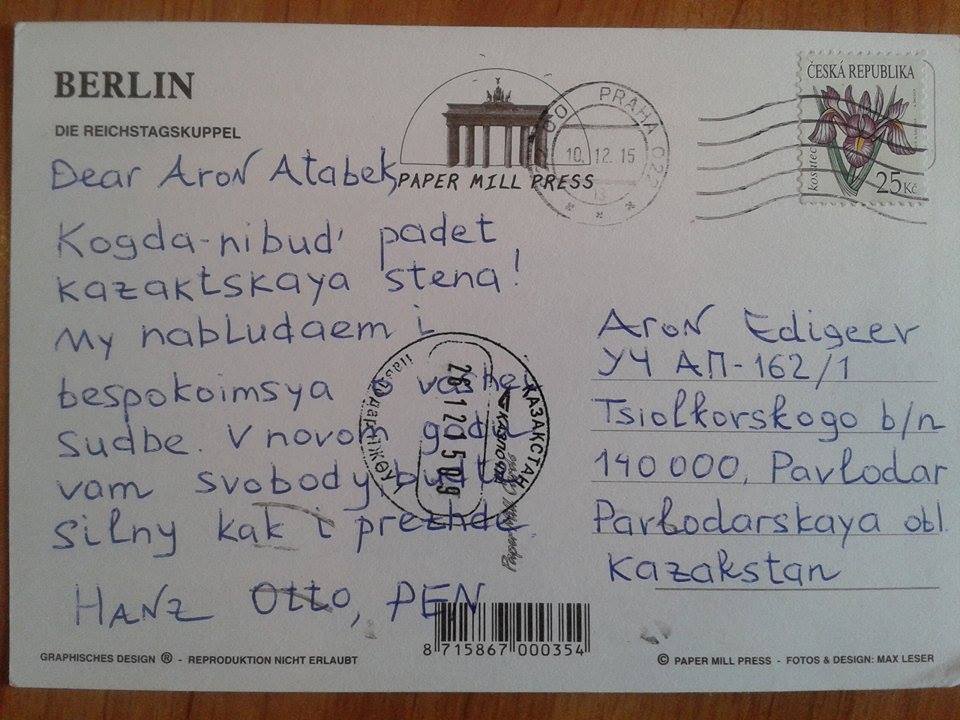 BERLIN
DIE REICHSTAGSKUPPEL
PAPER MILL PRESS
PRAHA 022
10.12.15
ČESKÁ REPUBLIKA
kosatec
25 Kč
Dear Aron Atabek,
Kogda-nibud' padet
kazaktskaya stena!
My nabludaem i
bespokoimsya o vashey
sudbe. V novom godu
vam svobody budte
silny kak i prezhde
HANZ Otto, PEN
ҚАЗАҚСТАН
26 12 15 09
Aron Edigeev
УЧ АП-162/1
Tsiolkorskogo b/n
140 000, Pavlodar
Pavlodarskaya obl.
Kazakstan
8 715867 000354
GRAPHISCHES DESIGN ® - REPRODUKTION NICHT ERLAUBT
© PAPER MILL PRESS - FOTOS & DESIGN: MAX LESER